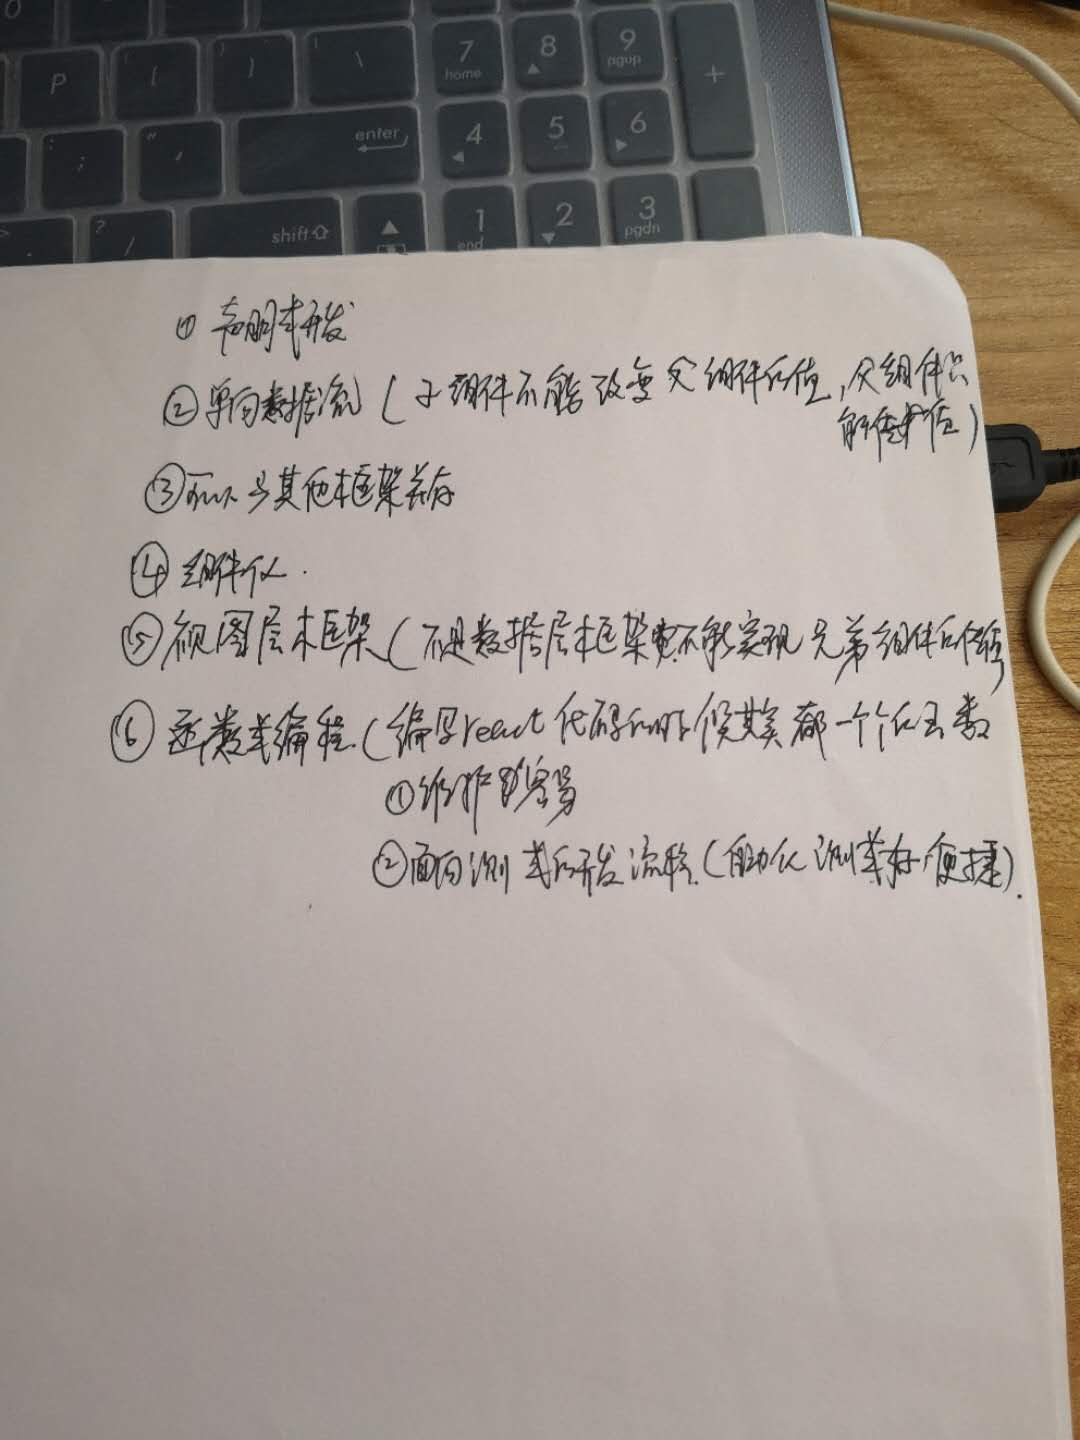 P
7
home
8
9
pgup
+
enter
4
5
6
shift
1
end
2
3
pgdn
① 声明式开发
② 单向数据流 (子组件不能改变父组件的值, 父组件只
能传值)
③ 可以与其他框架共存
④ 组件化.
⑤ 视图层框架 (不是数据层框架 不能实现兄弟组件的传
⑥ 函数式编程. (编写react代码的时候其实都一个个的函数
① 维护容易
② 面向测试的开发流程. (自动化测试 便捷).